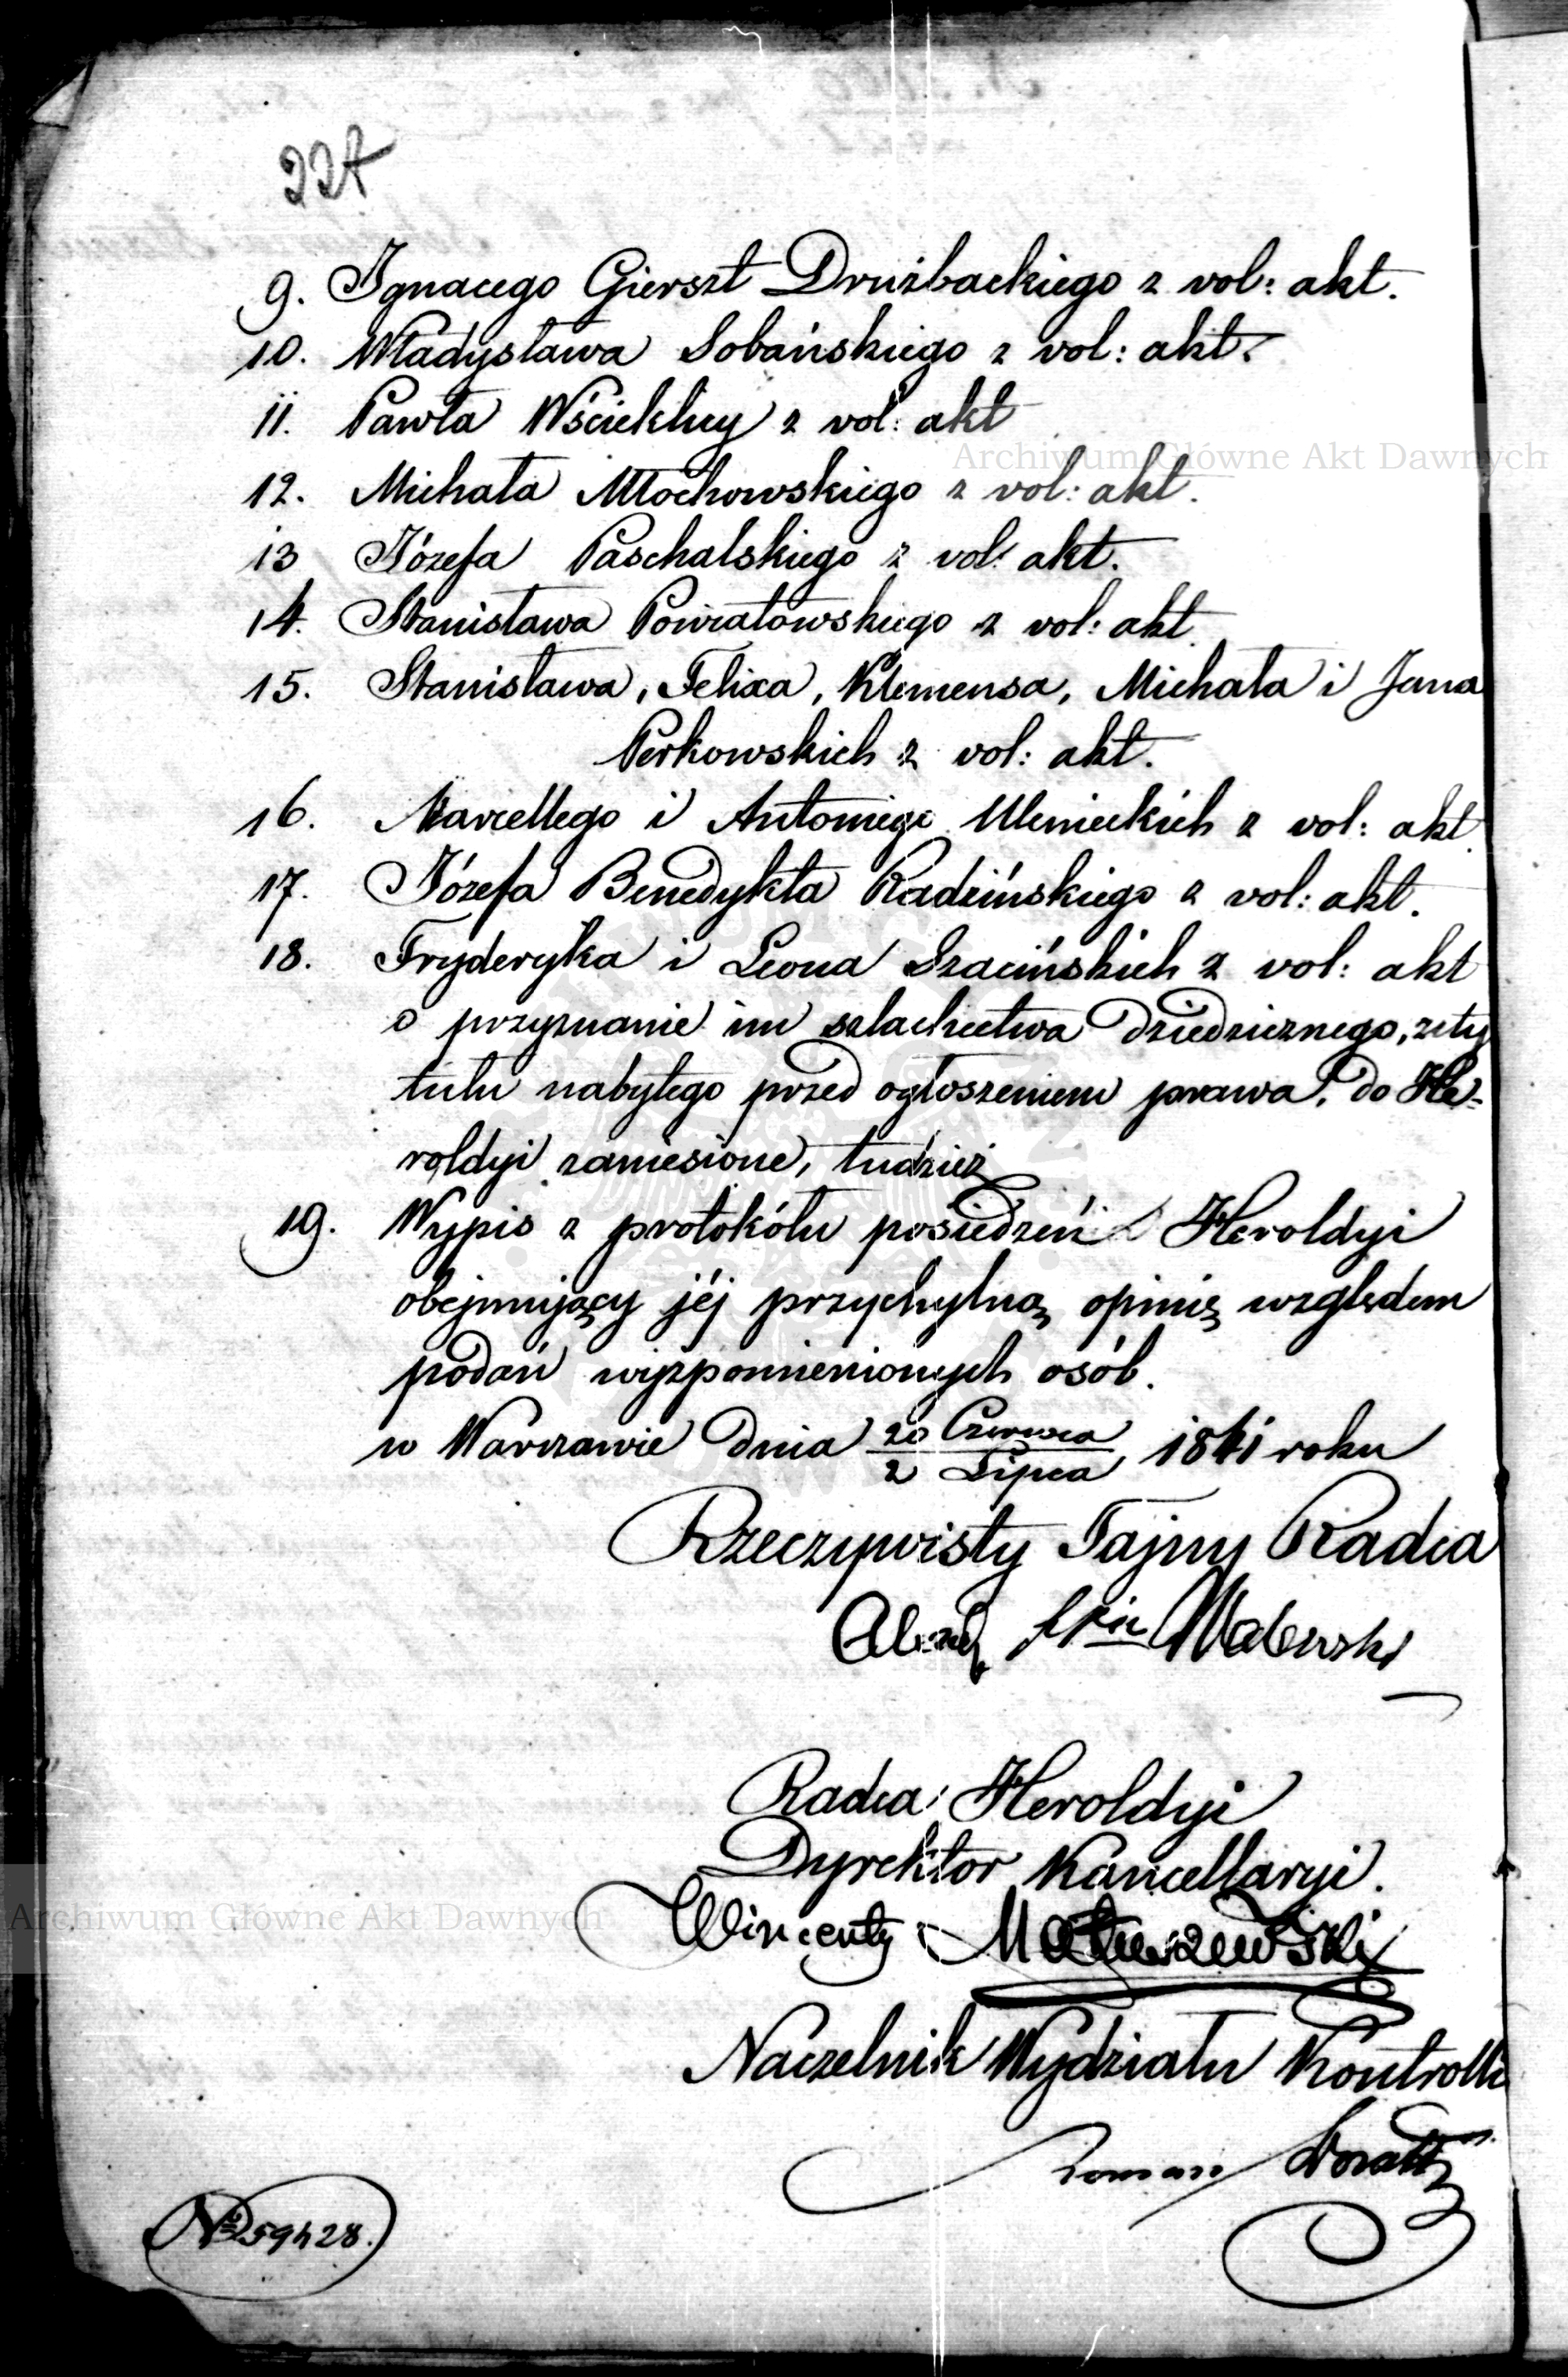 227
9. Ignacego Gierszt Drużbackiego z vol: akt.
10. Władysława Sobańskiego z vol: akt.
11. Pawła Wścieklicy z vol: akt
Archiwum Główne Akt Dawnych
12. Michała Młochowskiego z vol: akt.
13 Józefa Paschalskiego z vol: akt.
14. Stanisława Powiatowskiego z vol: akt.
15. Stanisława, Felixa, Klemensa, Michała i Jana
Perkowskich z vol: akt.
16. Marcellego i Antoniego Ulenieckich z vol: akt.
17. Józefa Benedykta Radzińskiego z vol: akt.
18. Fryderyka i Leona Szacińskich z vol: akt
o przyznanie im szlachectwa dziedzicznego, z ty
tułu nabytego przed ogłoszeniem prawa, do He-
roldyi zaniesione, tudzież
19. Wypis z protokółu posiedzeń Heroldyi
obejmujący jéj przychylną opinię względem
podań wyżpomienionych osób.
w Warszawie dnia 20 Czerwca / 2 Lipca 1841 roku
Rzeczywisty Tajny Radca
Walewski
Radca Heroldyi
Dyrektor Kancellaryi.
Archiwum Główne Akt Dawnych
Wincenty Matuszewski
Naczelnik Wydziału Kontrolli
Roman
№ 59428.